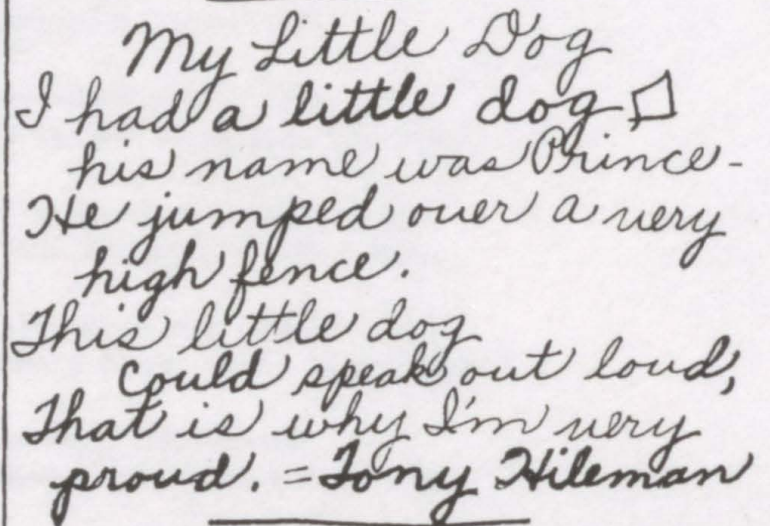 My Little Dog
I had a little dog
his name was Prince-
He jumped over a very
high fence.
This little dog
Could speak out loud,
That is why I'm very
proud. = Tony Hileman